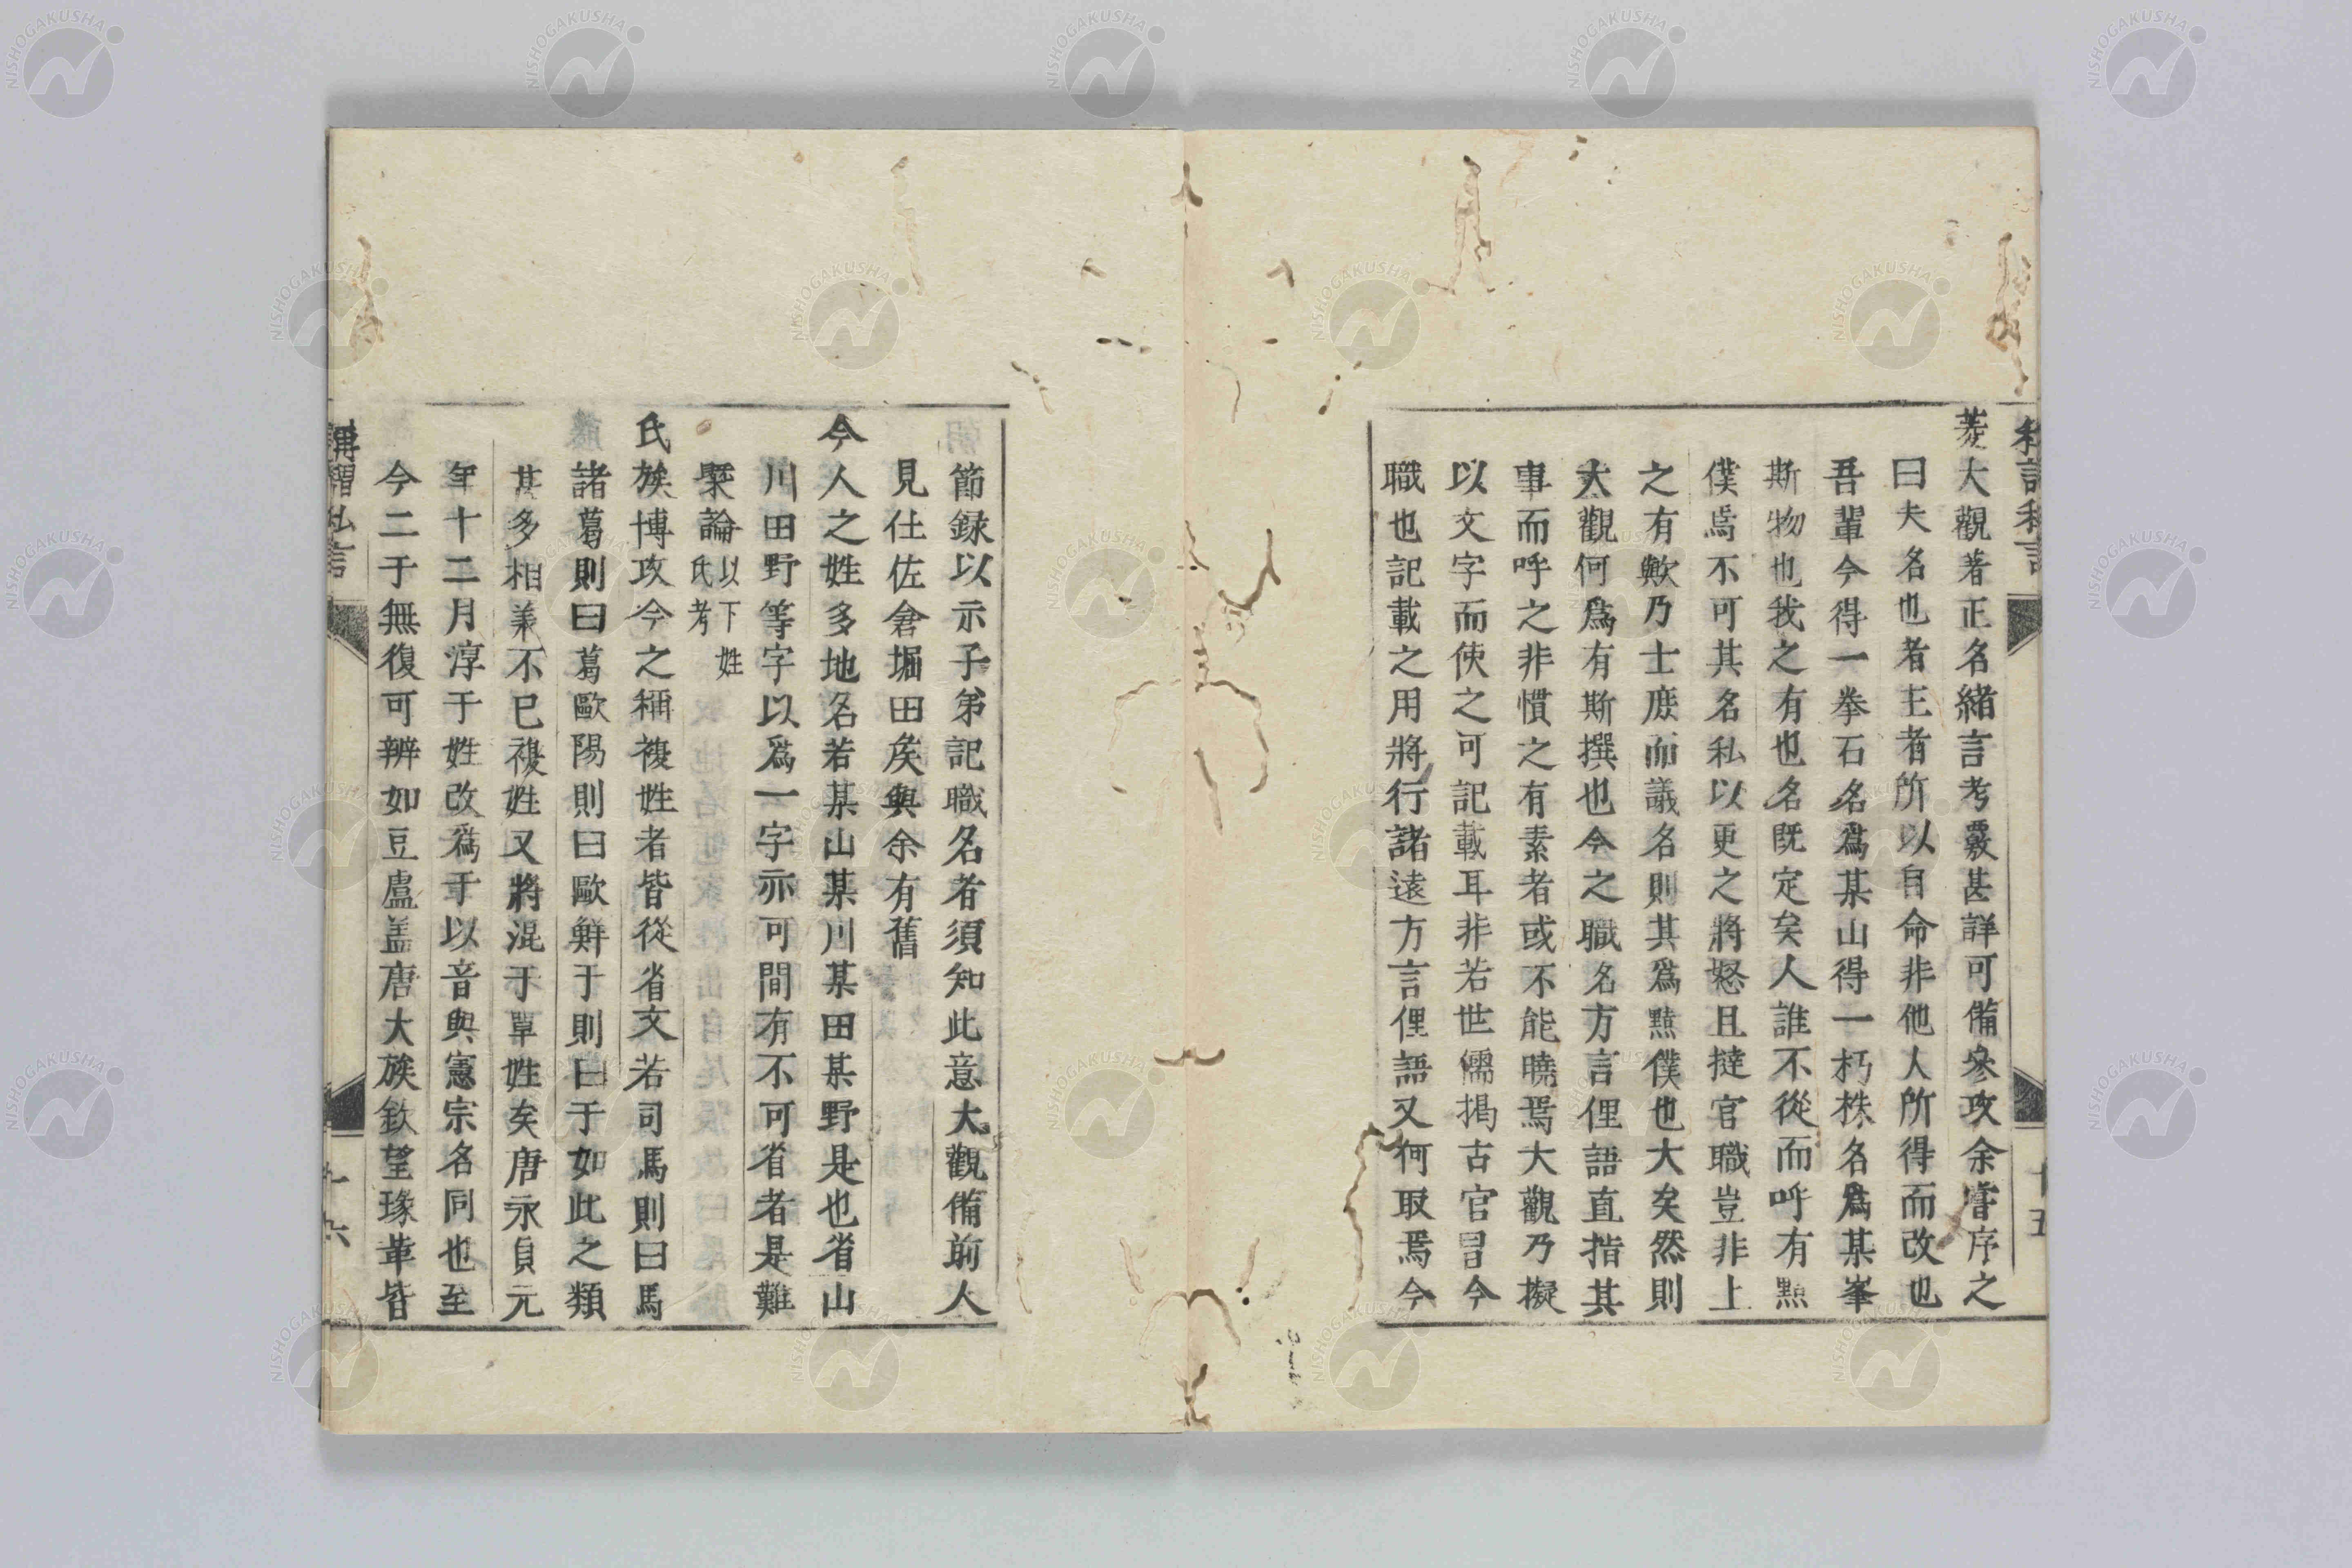 菱大觀著正名緒言考覈甚詳可備參攷余嘗序之
曰夫名也者王者所以自命非他人所得而改也
吾輩今得一拳石名爲某山得一朽株名爲某峯
斯物也我之有也名既定矣人誰不從而呼有黠
僕焉不可其名私以更之將怒且撻官職豈非上
之有歟乃士庻而議名則其爲黠僕也大矣然則
大觀何爲有斯撰也今之職名方言俚語直指其
事而呼之非慣之有素者或不能曉焉大觀乃擬
以文字而使之可記載耳非若世儒揭古官冒今
職也記載之用將行諸遠方言俚語又何取焉今
節録以示子弟記職名者須知此意大觀備前人
見仕佐倉堀田矦與余有舊
今人之姓多地名若某山某川某田某野是也省山
川田野等字以爲一字亦可間有不可省者是難
槩論以下姓氏考
氏族博攷今之稱複姓者皆從省文若司馬則曰馬
諸葛則曰葛歐陽則曰歐鮮于則曰于如此之類
其多相兼不已複姓又將混于單姓矣唐永貞元
年十二月淳于姓改爲于以音與憲宗名同也至
今二于無復可辨如豆盧盖唐大族欽望瑑革皆
十五
十六
NISHOGAKUSHA